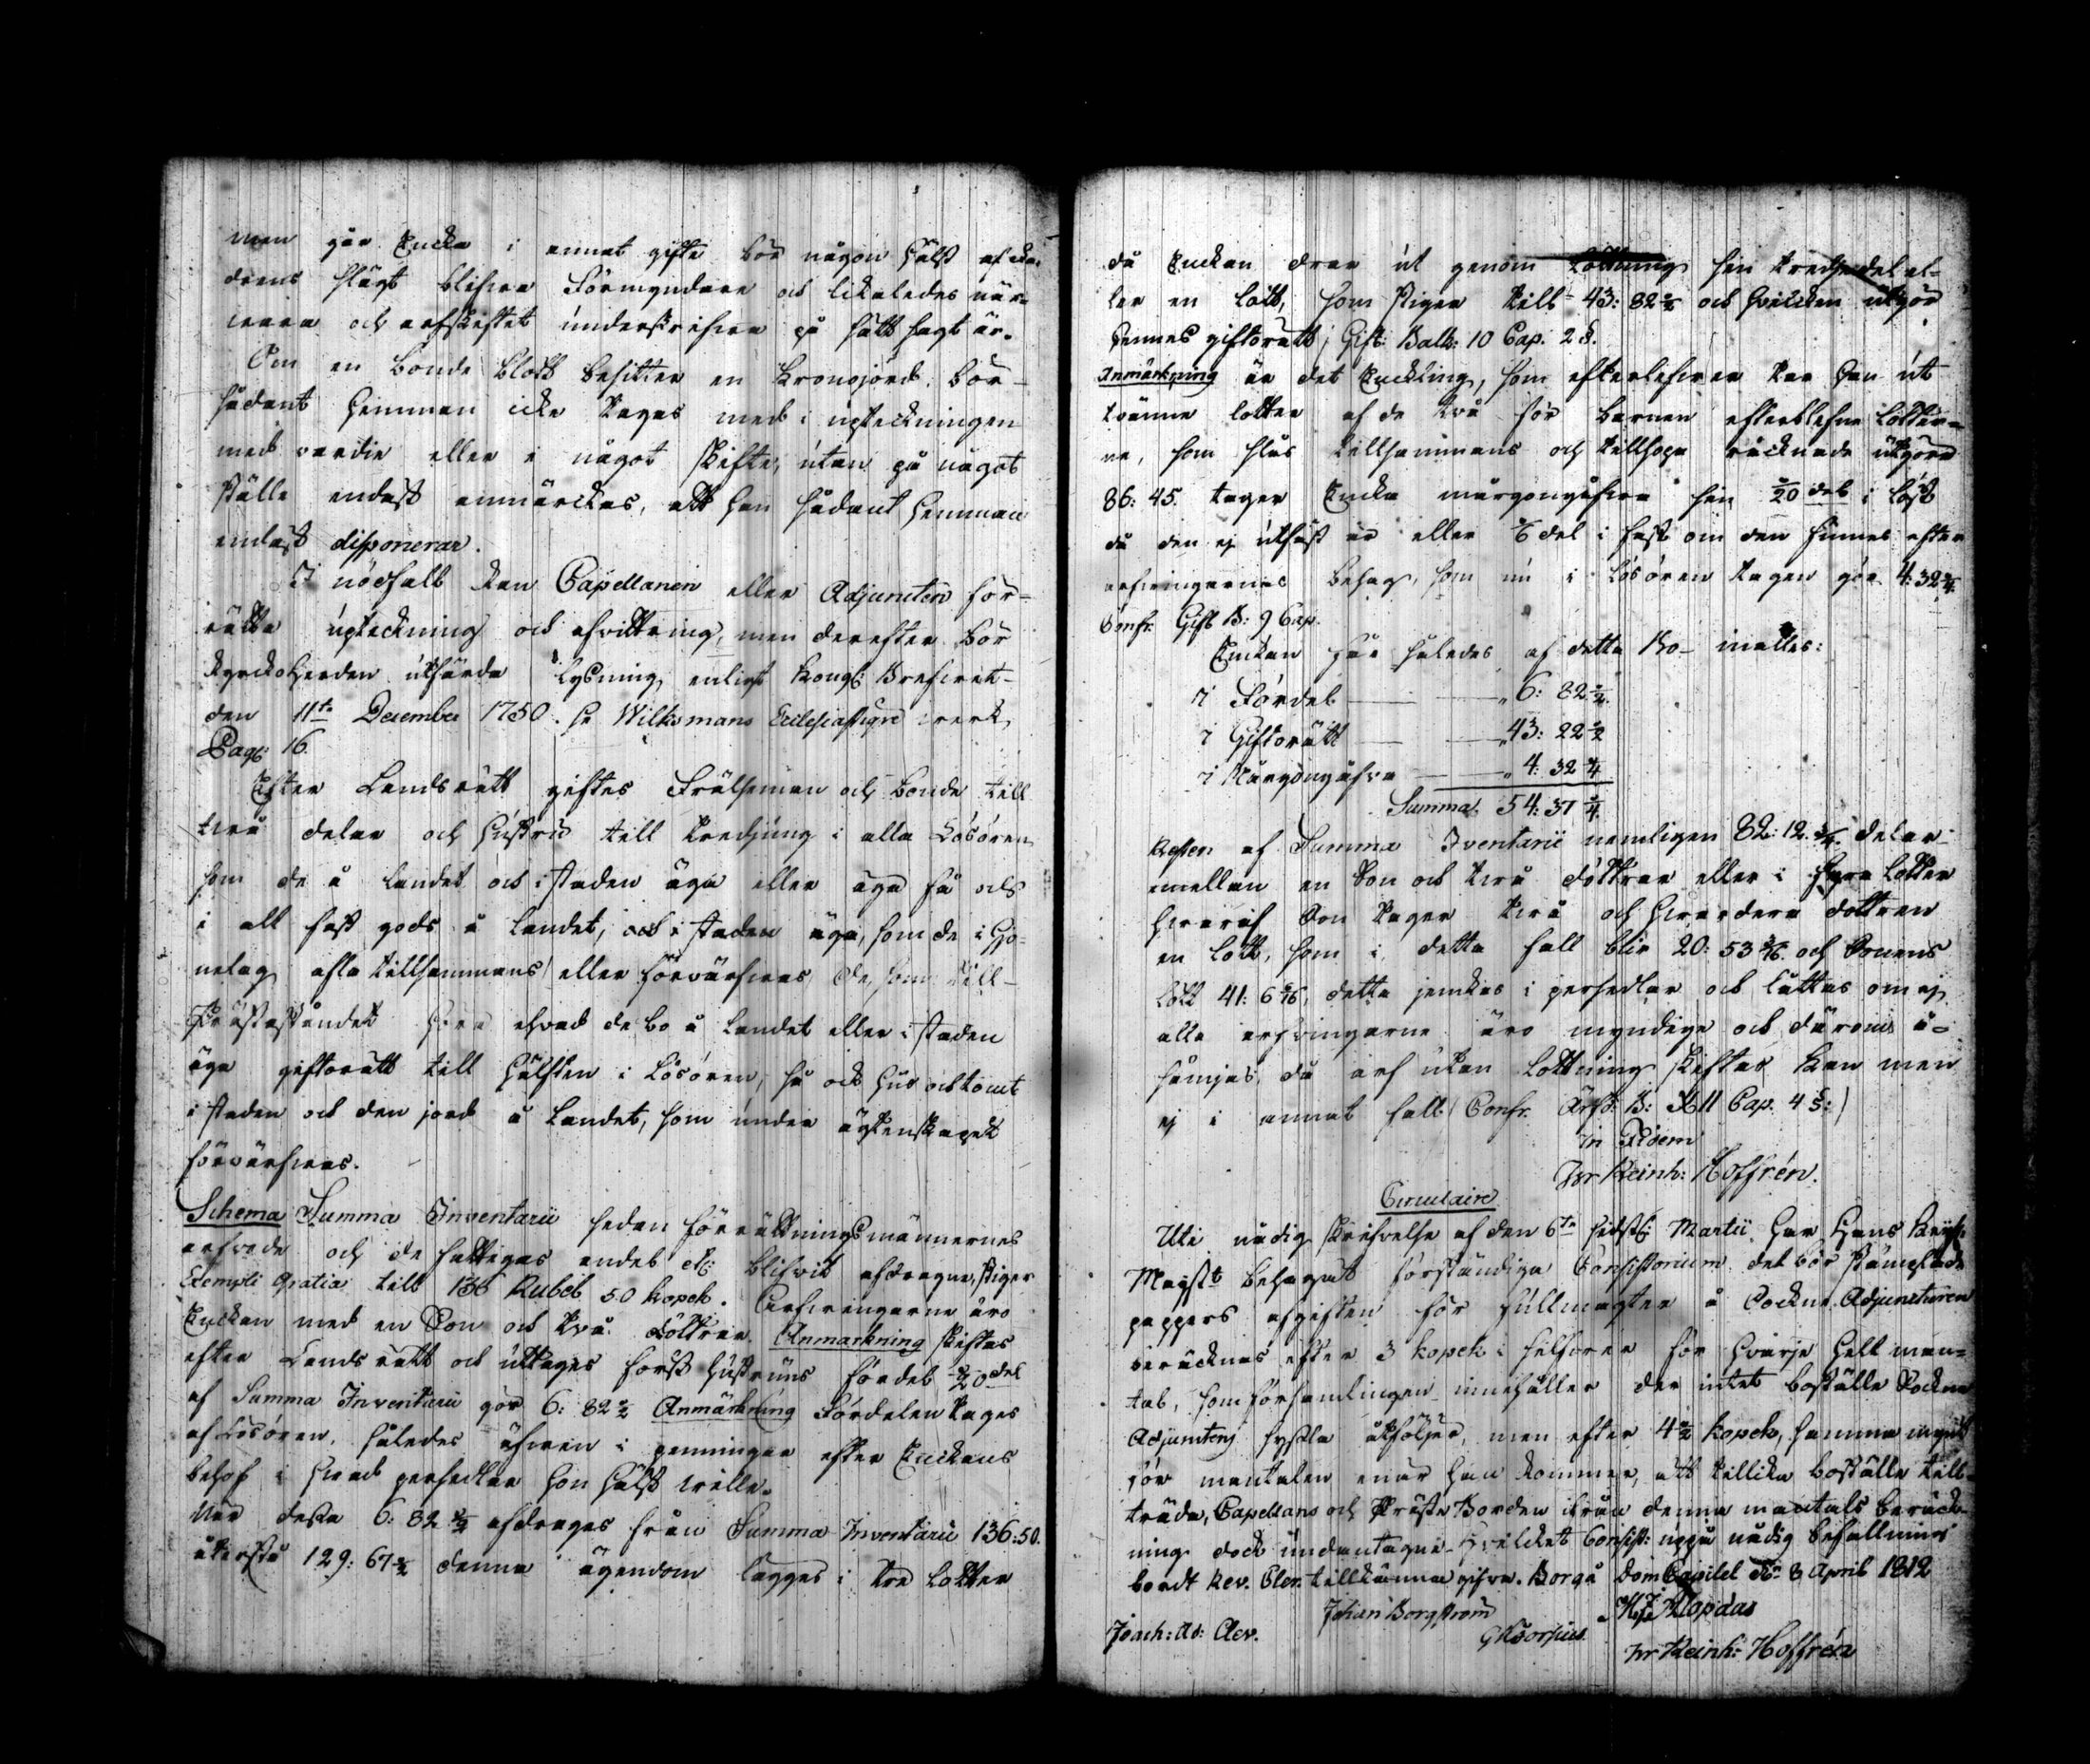 men går Enckan i annat gifte bör någon hälst af
drens slägt blifva Förmyndare och likaledes när-
vara och arfskiftet underskrifva på sätt sagt är.
Om en Bonde blott besitter en Kronojord, bör
sådant Hemman icke tagas med i upteckningen
med värdie eller i något skifte, utan på något
ställe endast anmärckas, att han sådant Hemman
endast disponerar.
I nödfall kan Capellanen eller Adjuncten för-
rätta upteckning och afvittring, men derefter bör
Kyrckoherden utfärda Lysning enligt Kongl: Brefvet
den 11te December 1750. se Wilksmans Ecclesiastique verk
Pag: 16.
Efter Landsrätt giftes Frälseman och Bonde till
två delar och Hustru till tredjung i alla Lösören
som de å landet och i staden äga eller äga få och
i all fast gods å landet, och i staden äga, som de i Hjo-
nelag afla tillsammans eller förvärfvas de, som till
Prästaståndet höra ehvad de bo å Landet eller i staden
äga giftorätt till hälften i Lösören, så ock hus och tomt
i staden och den jord å Landet, som under ägtenskapet
förvärfvas.
Schema Summa Inventarii sedan Förrättningsmännernes
arfvode och de fattigas andel etc: blifvit afdragne, stiger
Exempli gratia till 136 Rubel 50 kopek. Arfvingarne äro
Enckan med en Son och två Döttrar. Anmärkning skiftas
efter Landsrätt och uttages först Hustruns fördel 1/20 del
af Summa Inventarii gör 6: 82 1/2 Anmärkning Fördelen tages
af Lösören, således äfven i penningar efter Enckans
behof i hvad persedlar hon hälst ville.
När dessa 6: 82 1/2 afdrages från Summa Inventarii 136:50.
återstå 129: 67 1/2 denna ägendom lägges i tre Lotter
då Enckan drar ut genom Lottning sin tredjedel el-
ler en lott, som stiger till 43: 22 1/2 och hvilcken utgör
hennes giftorätt, Gift: Balk: 10 Cap. 2 §.
Anmärkning är det Enckling, som efterlefver tar han ut
tvänne lotter af de två för barnen efterblefne Lotter-
ne, som slås tillsammans och tillhopa räcknade utgöra
86: 45. tager Encka morgongåfva sin 1/20 del i löst
då den ej utfäst är eller 1/6 del i fast om den finnes efter
arfvingarnes behag, som nu i Lösören tagen gör 4: 32 1/4.
Confr. Gift B: 9 Cap.
Enckan får således af detta Bo inalles:
i Fördel — 6: 82 1/2
i Giftorätt — 43: 22 1/2
i Morgongåfva — 4: 32 1/4
Summa 54: 37 1/4
Resten af Summa Inventarii nemligen 82: 12. 3/4. delar
emellan en Son och två döttrar eller i fyra Lotter
hvaraf Son tager två och hvardera dottren
en lott, som i detta fall blir 20: 53 3/16. och Sonens
lott 41: 6 6/16, detta jemkas i persedlar och lottas om ej
alla arfvingarne äro myndige och därom å-
sämjas, då arf utan Lottning skiftas kan men
ej i annat fall (Confr. Ärfd: B: XII Cap. 4 §:)
In Fidem
Jvr Reinh: Hoffrén.
Circulaire
Uti nådig skrifvelse af den 6te sidstl: Martii har Hans Keijs:
Majst: behagat förständiga Consistorium det bör stämplade
pappers afgiften för fullmagter å Sockne Adjuncturen
beräcknas efter 3 kopek i silfver för hvarje helt man-
tal, som församlingen innehåller der intet boställe Sockne
Adjunctens syssla åtföljer, men efter 4 1/2 kopek, samma mynt
för mantalen enär han kommer, att tillika boställe till-
träda, Capellans och Präste Borden ifrån denna mantals beräck-
ning dock undantagne. Hvilcket Consist: uppå nådig befallning
bordt Rev. Cler. tillkänna gifva. Borgå Dom Capitel den 8 April 1812
Johan Borgström
M: J: Alopæus
Joach: Ad: Clev.
G Aborsius
Jvr Reinh: Hoffrén